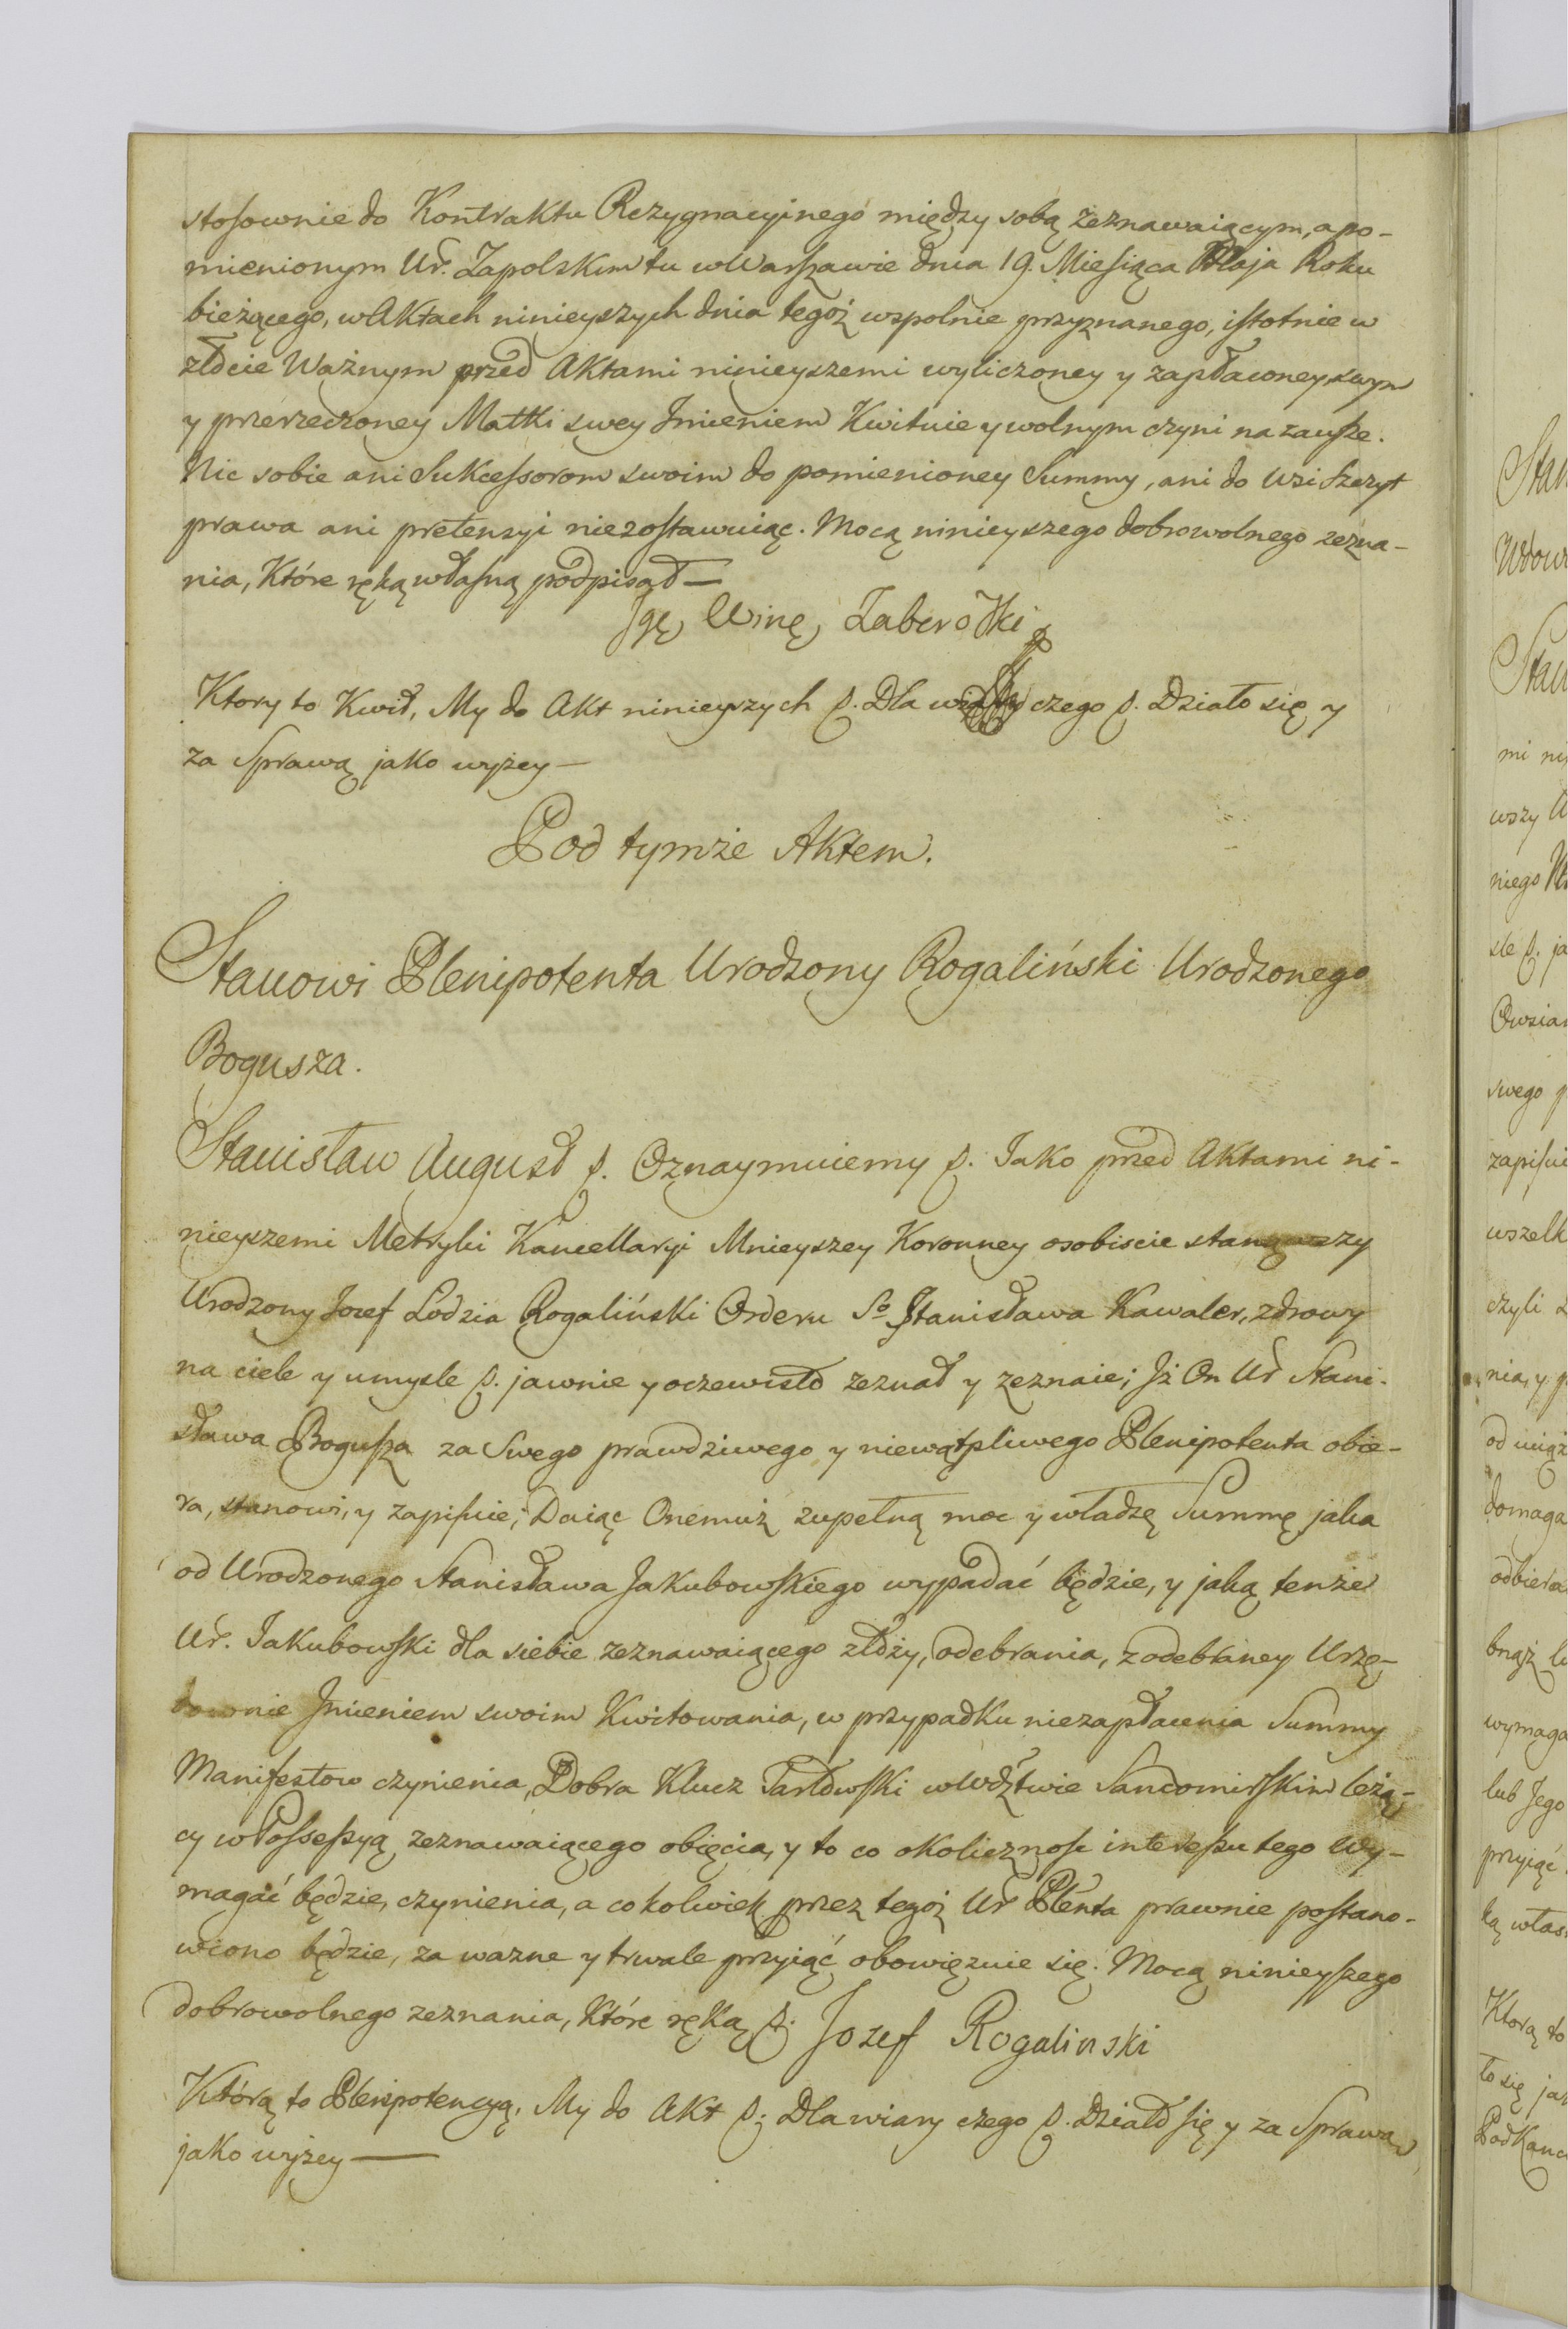 stosownie do Kontraktu Rezygnacyinego między sobą zeznawaiącym, a po-
mienionym Ur. Zapolskim tu w Warszawie dnia 19. Miesiąca Maja Roku
bieżącego, w Aktach ninieyszych dnia tegoż wspolnie przyznanego, istotnie w
złocie Ważnym przed Aktami ninieyszemi wyliczoney y zapłaconey swym
y przerzeczoney Matki swey Jmieniem Kwituie y wolnym czyni na zausze.
Nic sobie ani Sukcessorom swoim do pomienioney Summy, ani do Wsi Szczyt
prawa ani pretensyi niezostawuiąc. Mocą ninieyszego dobrowolnego zezna-
nia, Które ręką własną podpisał —
Zaborowski
Ktory to Kwit, My do Akt ninieyszych p. Dla wiary czego p. Działo się y
za Sprawą jako wyżey —
Pod tymże Aktem.
Stanowi Plenipotenta Urodzony Rogaliński Urodzonego
Bogusza.
Stanisław August p. Oznaymuiemy p. Jako przed Aktami ni-
nieyszemi Metryki Kancellaryi Mnieyszey Koronney osobiscie stanąwszy
Urodzony Jozef Łodzia Rogaliński Orderu So Stanisława Kawaler, zdrowy
na ciele y umysle p. jawnie y oczewisto zeznał y zeznaie; Jż On Ur Stani-
sława Bogusza za Swego prawdziwego y niewątpliwego Plenipotenta obie-
ra, stanowi, y zapisuie; Daiąc Onemuż zupełną moc y władzę Summę jaka
od Urodzonego Stanisława Jakubowskiego wypadać będzie, y jaką tenże
Ur. Jakubowski dla siebie zeznawaiącego złoży, odebrania, z odebraney Urzę-
downie Jmieniem swoim Kwitowania, w przypadku niezapłacenia Summy
Manifestow czynienia, Dobra Klucz Tarłowski w Wdztwie Sandomirskim leżą-
cy w Possessyą zeznawaiącego obięcia, y to co okoliczność interessu tego wy-
magać będzie, czynienia, a cokolwiek przez tegoż Ur Plenta prawnie postano-
wiono będzie, za wazne y trwałe przyiąć obowięzuie się. Mocą ninieyszego
dobrowolnego zeznania, Które ręką p. Jozef Rogalinski
Którą to Plenipotencyą, My do Akt p. Dla wiary czego p. Działo się y za Sprawą
jako wyżey —